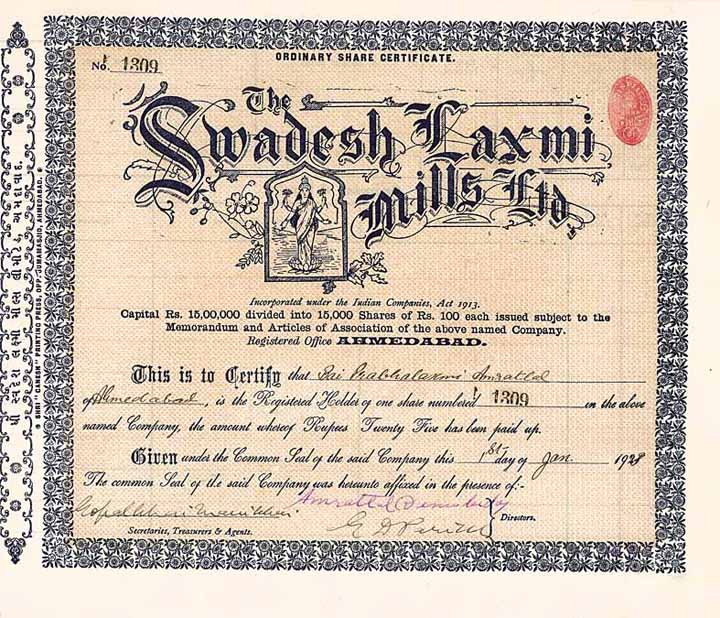 ORDINARY SHARE CERTIFICATE.
No. 1309
The
Swadesh Laxmi
Mills Ltd
Incorporated under the Indian Companies, Act 1913.
Capital Rs. 15,00,000 divided into 15,000 Shares of Rs. 100 each issued subject to the
Memorandum and Articles of Association of the above named Company.
Registered Office AHMEDABAD.
This is to Certify that Bai Prabhalaxmi Amratlal
of Ahmedabad, is the Registered Holder of one share numbered 1309 on the above
named Company, the amount whereof Rupees Twenty Five has been paid up.
Given under the Common Seal of the said Company this 1st day of Jan. 1928
The common Seal of the said Company was hereunto affixed in the presence of:-
Amratlal
Directors.
Secretaries, Treasurers & Agents.
ધી સ્વદેશ લક્ષ્મી મીલ્સ લીમીટેડ, અમદાવાદ.
"CAXTON" PRINTING PRESS, OPP. JUMAMASJID, AHMEDABAD.